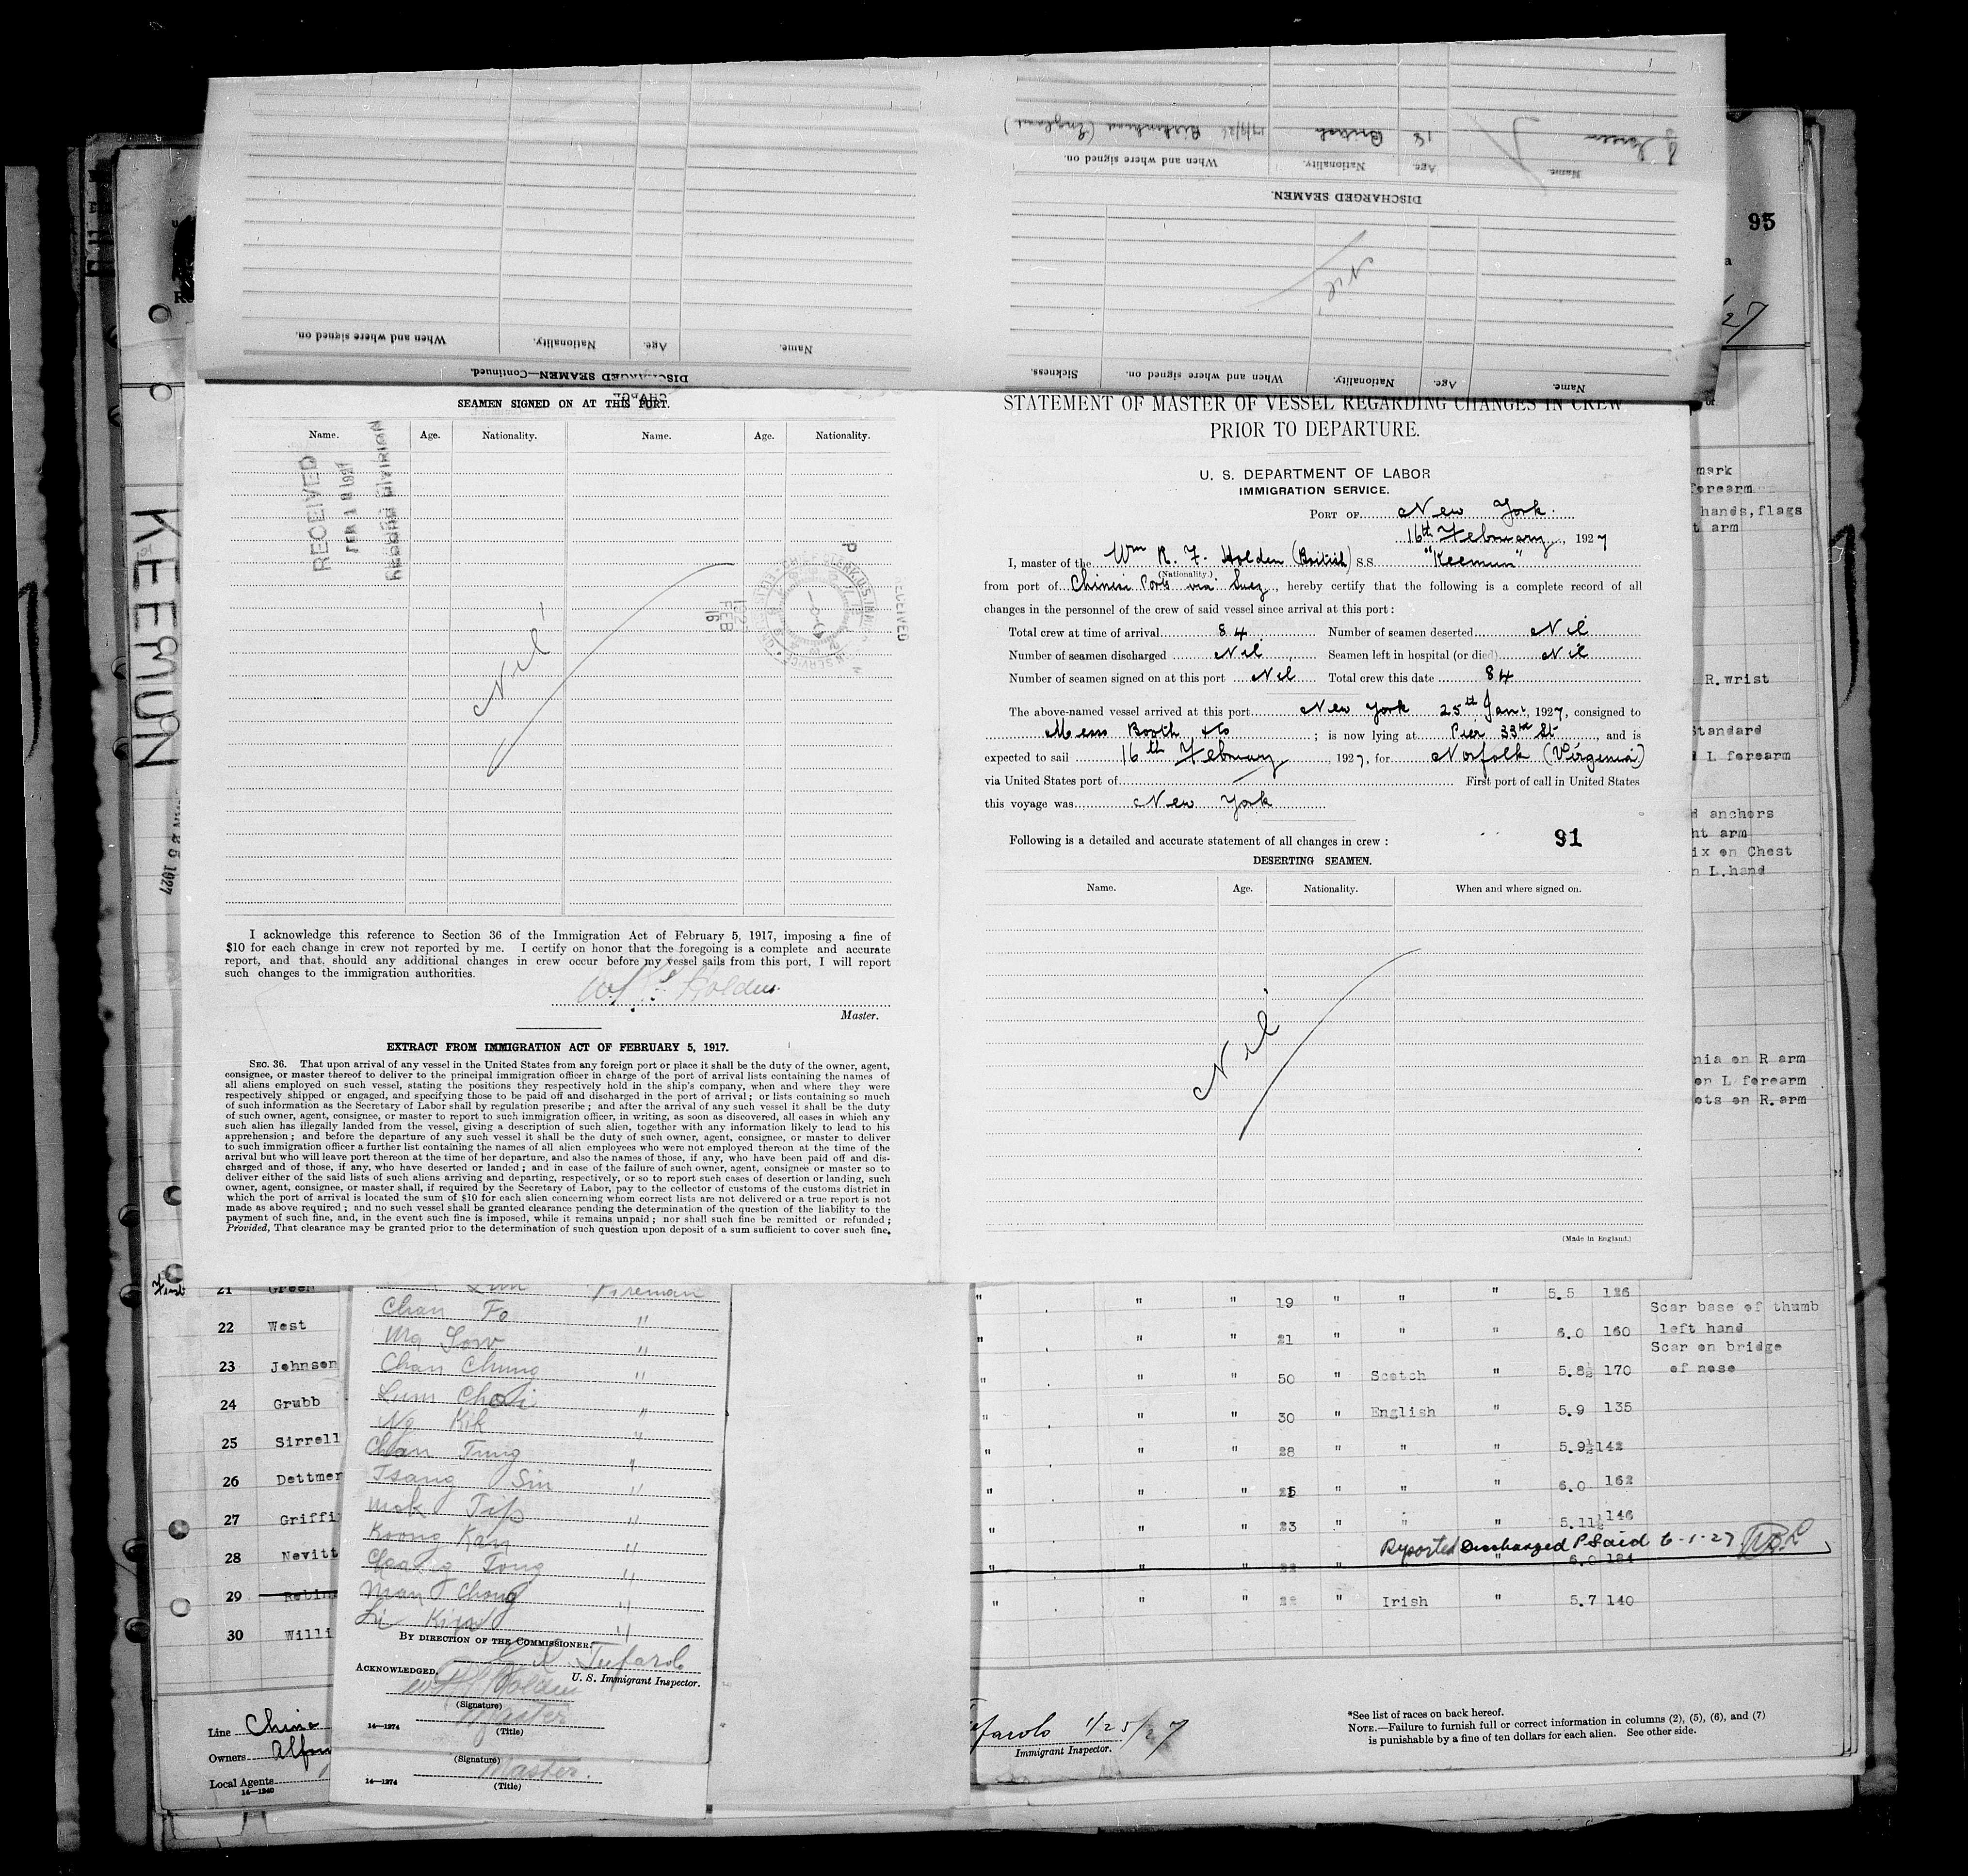 J Green 18 British 17/9/26 Birkenhead (England)
Name. Age. Nationality. When and where signed on.
DISCHARGED SEAMEN.
Nil
Name. Age. Nationality. When and where signed on. Sickness.
Name. Age. Nationality. When and where signed on.
DISCHARGED SEAMEN—Continued.
95
27
KEEMUN
SEAMEN SIGNED ON AT THIS PORT.
Name. Age. Nationality. Name. Age. Nationality.
RECEIVED
FEB 1 1927
RECORD DIVISION
Nil
RECEIVED
FEB
16
I acknowledge this reference to Section 36 of the Immigration Act of February 5, 1917, imposing a fine of
$10 for each change in crew not reported by me. I certify on honor that the foregoing is a complete and accurate
report, and that, should any additional changes in crew occur before my vessel sails from this port, I will report
such changes to the immigration authorities.
Holden
Master.
EXTRACT FROM IMMIGRATION ACT OF FEBRUARY 5, 1917.
SEC. 36. That upon arrival of any vessel in the United States from any foreign port or place it shall be the duty of the owner, agent,
consignee, or master thereof to deliver to the principal immigration officer in charge of the port of arrival lists containing the names of
all aliens employed on such vessel, stating the positions they respectively hold in the ship's company, when and where they were
respectively shipped or engaged, and specifying those to be paid off and discharged in the port of arrival; or lists containing so much
of such information as the Secretary of Labor shall by regulation prescribe; and after the arrival of any such vessel it shall be the duty
of such owner, agent, consignee, or master to report to such immigration officer, in writing, as soon as discovered, all cases in which any
such alien has illegally landed from the vessel, giving a description of such alien, together with any information likely to lead to his
apprehension; and before the departure of any such vessel it shall be the duty of such owner, agent, consignee, or master to deliver
to such immigration officer a further list containing the names of all alien employees who were not employed thereon at the time of the
arrival but who will leave port thereon at the time of her departure, and also the names of those, if any, who have been paid off and dis-
charged and of those, if any, who have deserted or landed; and in case of the failure of such owner, agent, consignee or master so to
deliver either of the said lists of such aliens arriving and departing, respectively, or so to report such cases of desertion or landing, such
owner, agent, consignee, or master shall, if required by the Secretary of Labor, pay to the collector of customs of the customs district in
which the port of arrival is located the sum of $10 for each alien concerning whom correct lists are not delivered or a true report is not
made as above required; and no such vessel shall be granted clearance pending the determination of the question of the liability to the
payment of such fine, and, in the event such fine is imposed, while it remains unpaid; nor shall such fine be remitted or refunded;
Provided, That clearance may be granted prior to the determination of such question upon deposit of a sum sufficient to cover such fine.
STATEMENT OF MASTER OF VESSEL REGARDING CHANGES IN CREW
PRIOR TO DEPARTURE.
U. S. DEPARTMENT OF LABOR
IMMIGRATION SERVICE.
PORT OF New York.
16th February, 1927
I, master of the Wm R. F. Holden (British) S.S. "Keemun"
(Nationality.)
from port of Chinese Ports via Suez, hereby certify that the following is a complete record of all
changes in the personnel of the crew of said vessel since arrival at this port:
Total crew at time of arrival 84. Number of seamen deserted Nil
Number of seamen discharged Nil Seamen left in hospital (or died) Nil
Number of seamen signed on at this port Nil Total crew this date 84
The above-named vessel arrived at this port New York 25th Jan., 1927, consigned to
Mess Booth & Co; is now lying at Pier 33rd St, and is
expected to sail 16th February, 1927, for Norfolk (Virgenia)
via United States port of First port of call in United States
this voyage was New York
Following is a detailed and accurate statement of all changes in crew: 91
DESERTING SEAMEN.
Name. Age. Nationality. When and where signed on.
Nil
(Made in England.)
mark
forearm
hands, flags
t arm
R. wrist
Standard
L forearm
anchors
ht arm
ix on Chest
n L. hand
nia on R arm
on L forearm
ets on R. arm
21 Green
22 West
23 Johnson
24 Grubb
25 Sirrell
26 Dettmer
27 Griffi
28 Nevitt
29 Robin
30 Willi
Line China
Owners Alfr
Local Agents
14—1240
Fireman
Chan Fo "
Ng Sow "
Chan Chung "
Lum Choi "
Ng Kik "
Chan Tung "
Tsang Sin "
Mok Tip "
Koong Kan "
Chong Tong "
Man Chong "
Li Kim "
BY DIRECTION OF THE COMMISSIONER:
Tufarolo
ACKNOWLEDGED, U. S. Immigrant Inspector.
Holden
(Signature)
Master
14—1274 (Title)
(Signature)
Master.
14—1274 (Title)
" " " 19 " " " 5.5 126
Scar base of thumb
" " " 21 " " " 6.0 160 left hand
Scar on bridge
" " " 50 " Scotch " 5.8½ 170 of nose
" " " 30 " English " 5.9 135
" " " 28 " " " 5.9½ 142
" " " 25 " " " 6.0 162
" " " 23 " " " 5.11½ 146
Reported Discharged P Said 6-1-27
" " " 22 " 6.0 184
" " " 22 " Irish " 5.7 140
1/25/27
Immigrant Inspector.
*See list of races on back hereof.
NOTE.—Failure to furnish full or correct information in columns (2), (5), (6), and (7)
is punishable by a fine of ten dollars for each alien. See other side.